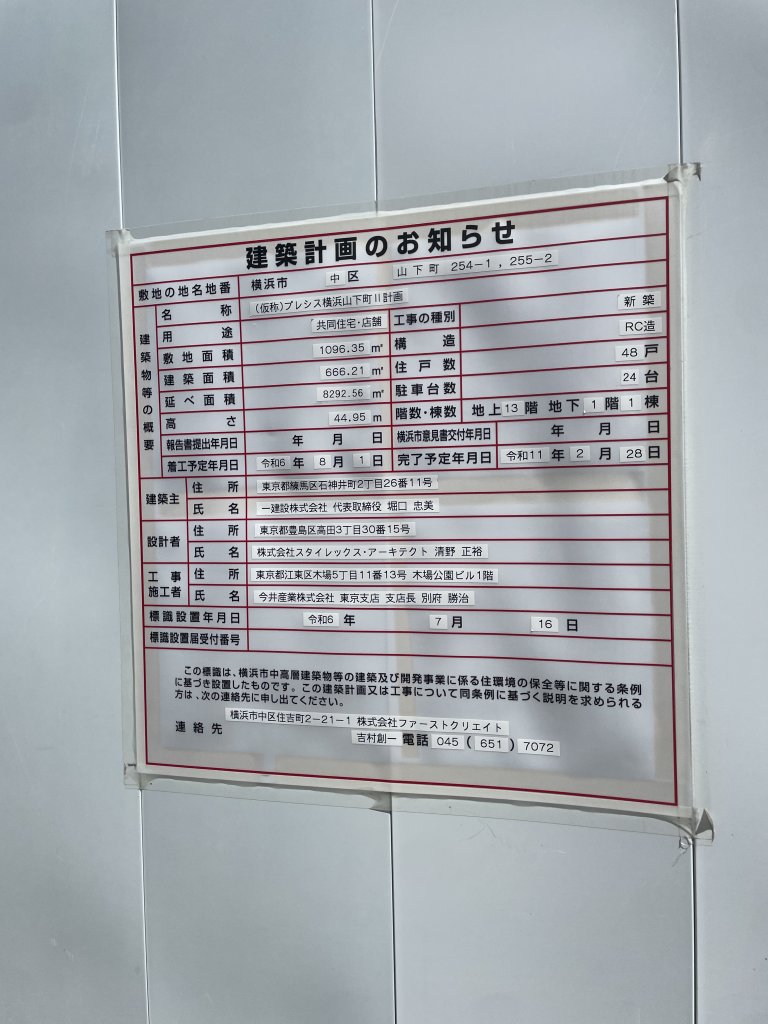 建築計画のお知らせ
敷地の地名地番 横浜市 中 区 山下町 254-1 , 255-2
建築物等の概要
名称 (仮称)プレシス横浜山下町Ⅱ計画
用途 共同住宅・店舗 工事の種別 新築
敷地面積 1096.35 ㎡ 構造 RC造
建築面積 666.21 ㎡ 住戸数 48 戸
延べ面積 8292.56 ㎡ 駐車台数 24 台
高さ 44.95 m 階数・棟数 地上 13 階 地下 1 階 1 棟
報告書提出年月日 年 月 日 横浜市意見書交付年月日 年 月 日
着工予定年月日 令和6 年 8 月 1 日 完了予定年月日 令和11 年 2 月 28 日
建築主 住所 東京都練馬区石神井町2丁目26番11号
氏名 一建設株式会社 代表取締役 堀口 忠美
設計者 住所 東京都豊島区高田3丁目30番15号
氏名 株式会社スタイレックス・アーキテクト 清野 正裕
工事施工者 住所 東京都江東区木場5丁目11番13号 木場公園ビル1階
氏名 今井産業株式会社 東京支店 支店長 別府 勝治
標識設置年月日 令和6 年 7 月 16 日
標識設置届受付番号
この標識は、横浜市中高層建築物等の建築及び開発事業に係る住環境の保全等に関する条例
に基づき設置したものです。この建築計画又は工事について同条例に基づく説明を求められる
方は、次の連絡先に申し出てください。
連絡先 横浜市中区住吉町2-21-1 株式会社ファーストクリエイト
吉村創一 電話 045 ( 651 ) 7072